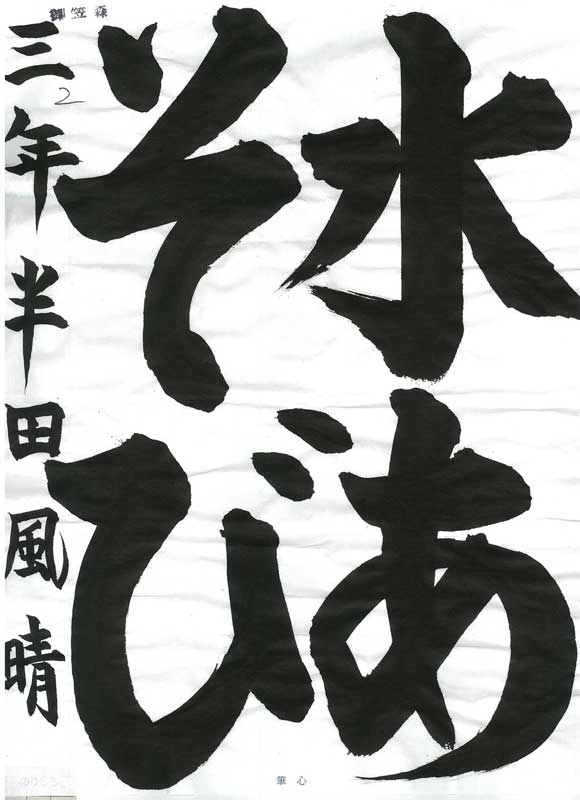 水あ
そび
三年半田風晴
御笠森
2
筆心